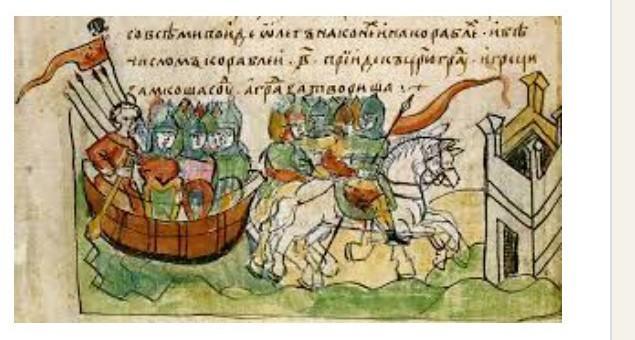 совсѣмипоиде ѡлегъ наконеи накорабле · ибѣ
числомъ кораблеи · ҂в҃ · прїиде къцр҃югра҃ · игреци
замкоша соу҃ · агра҃ затвориша